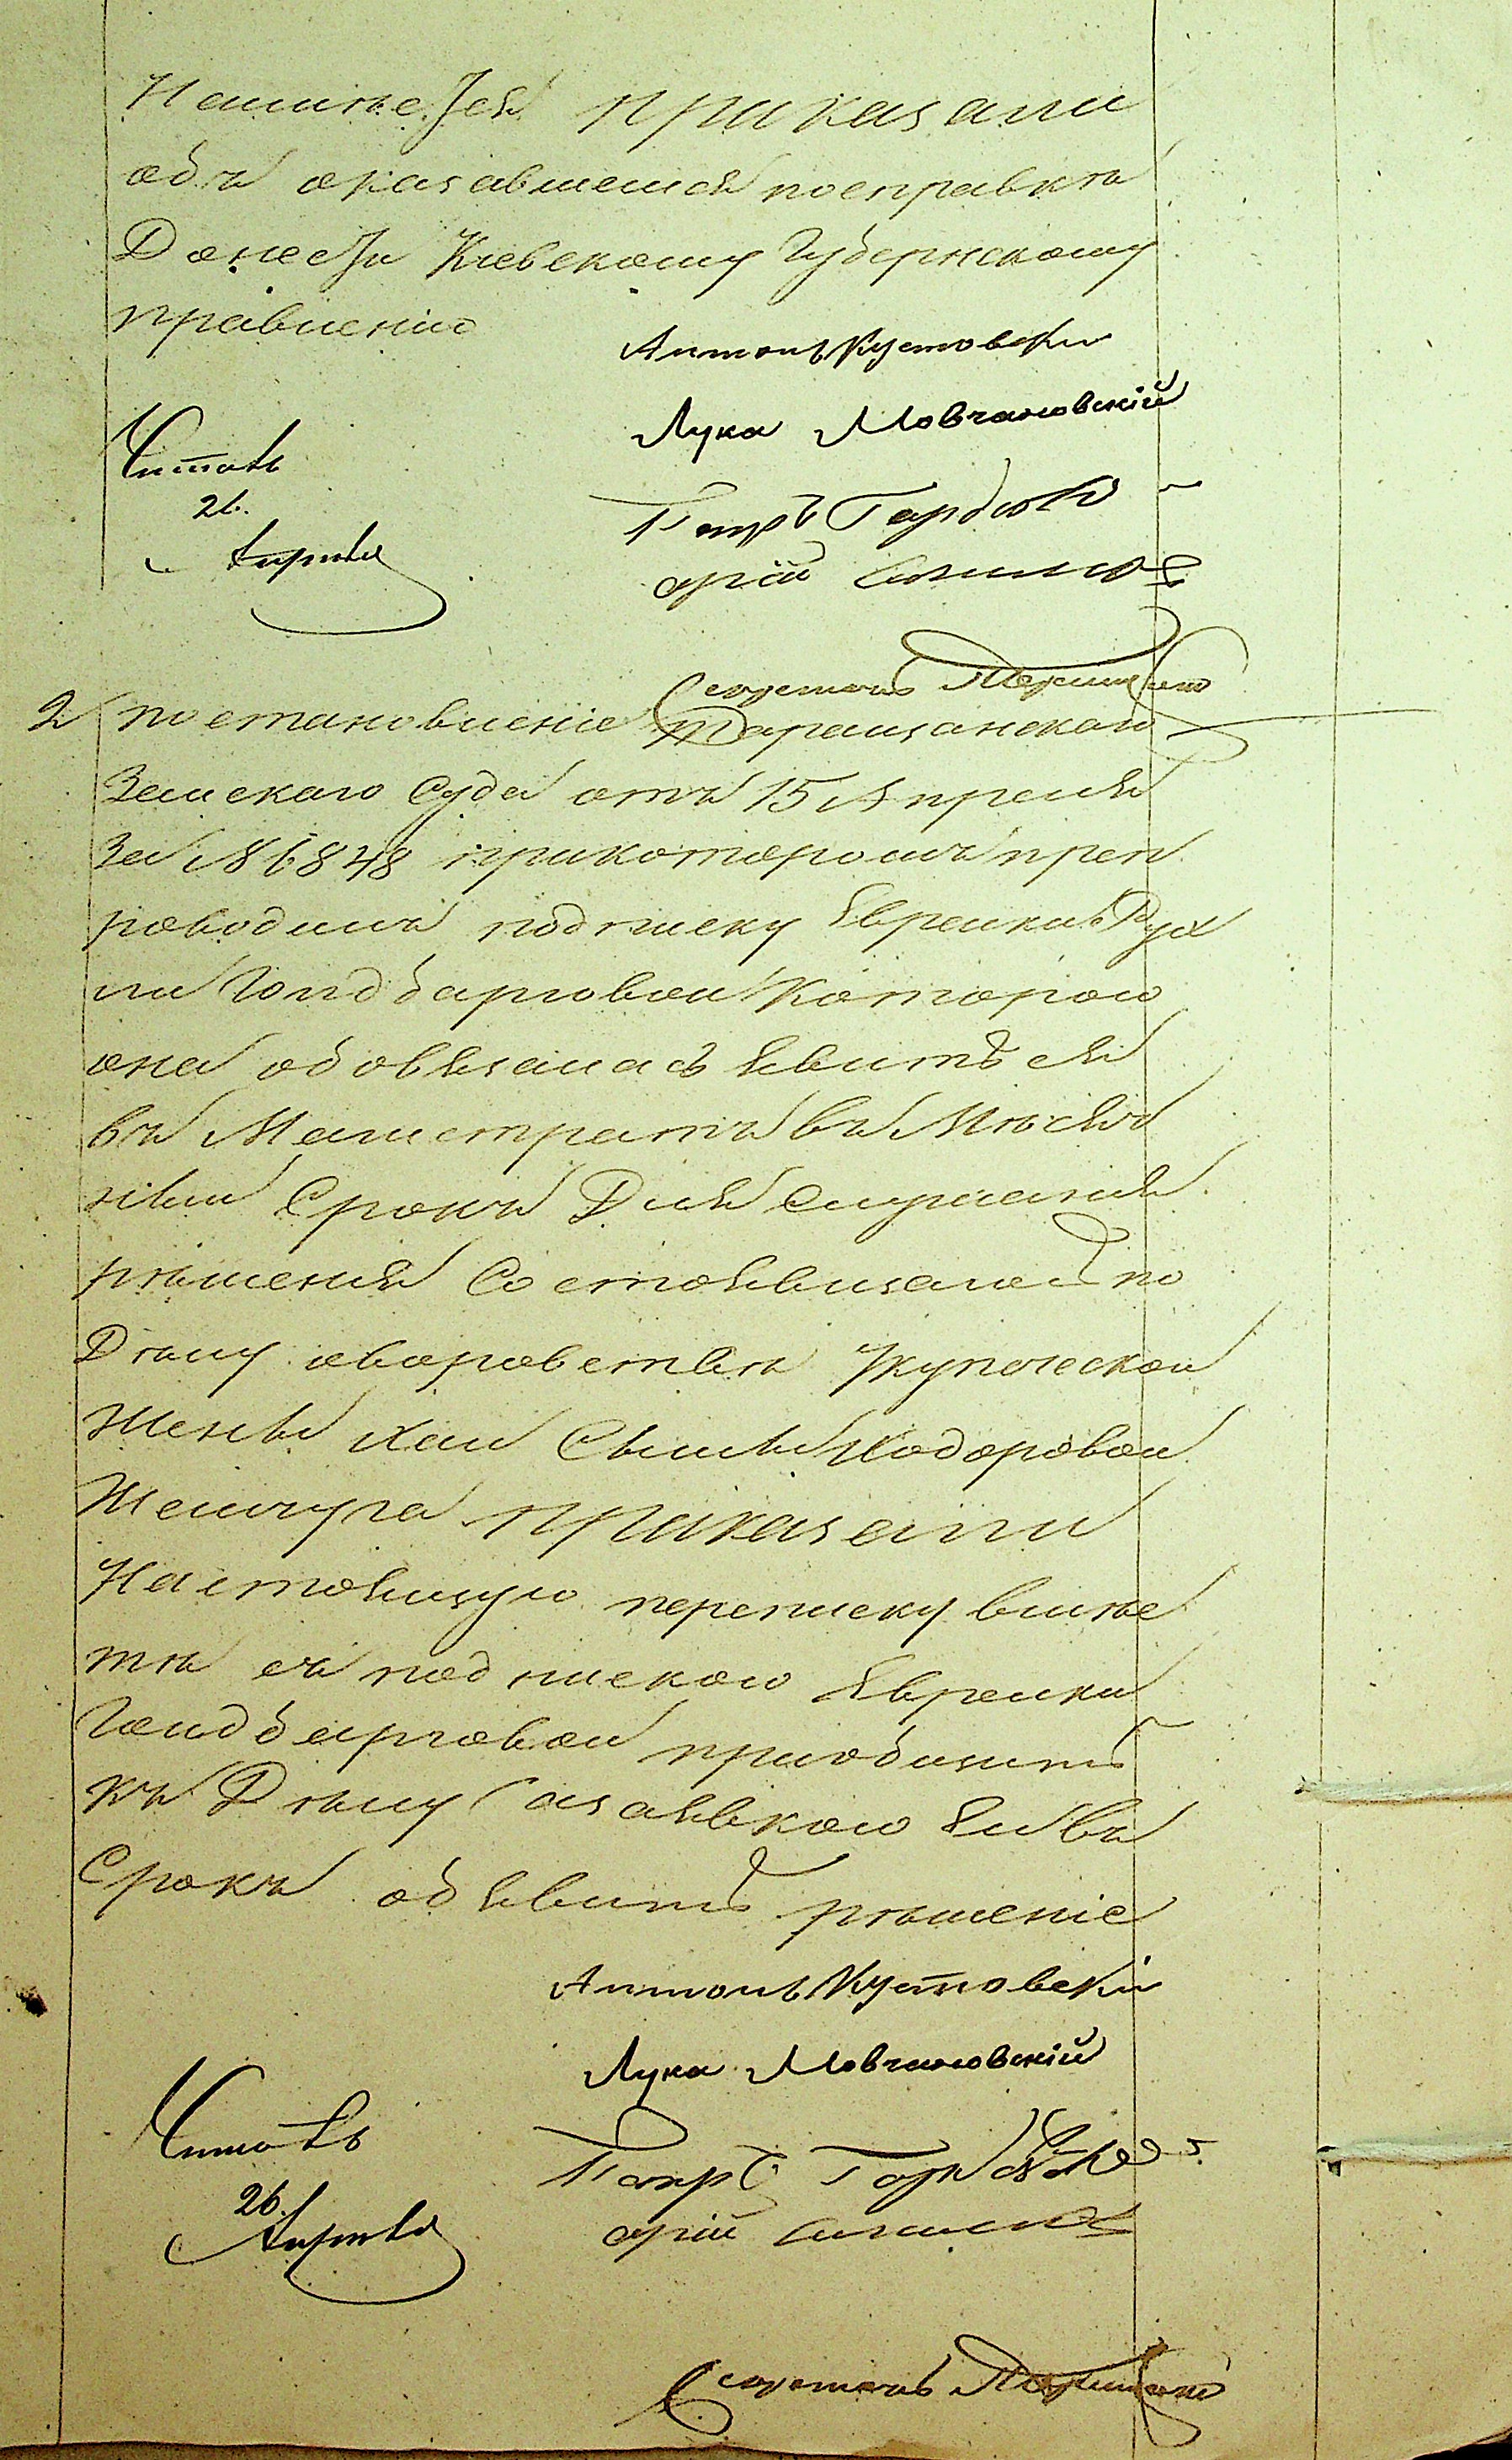 Неимѣется приказали
объ оказавшемся посправкѣ
Донести Кіевскому Губернскому
правленію
Антонъ Кустовскій
Лука Мовчановскій
Читалъ
26.
Апрѣля
Петръ Горбов
Секретарь
2 постановленіе Таращанскаго
Земскаго Суда отъ 15 Апреля
За № 6848 прикоторомъ преп
роводилъ подписку Еврейки Рух
ли Голдбарговой Которою
она обовязалась явитъся
въ Магистратъ въ Мѣсяч
ный Срокъ Для Слушанія
рѣшенія Состоявшагося по
Дѣлу оворовствѣ Укупеческой
жены Хаи Сымы Ходоровой
Жемчуга приказали
Настоящую переписку вмѣс
тѣ съ подпискою Еврейки
Голдбарговой приобщить
къ Дѣлу Сазаявкою Ея въ
Срокъ объявить рѣшеніе
Антонъ Кустовскій
Лука Мовчановскій
Читалъ
26.
Апрѣля
Петръ Горбов
Секретарь